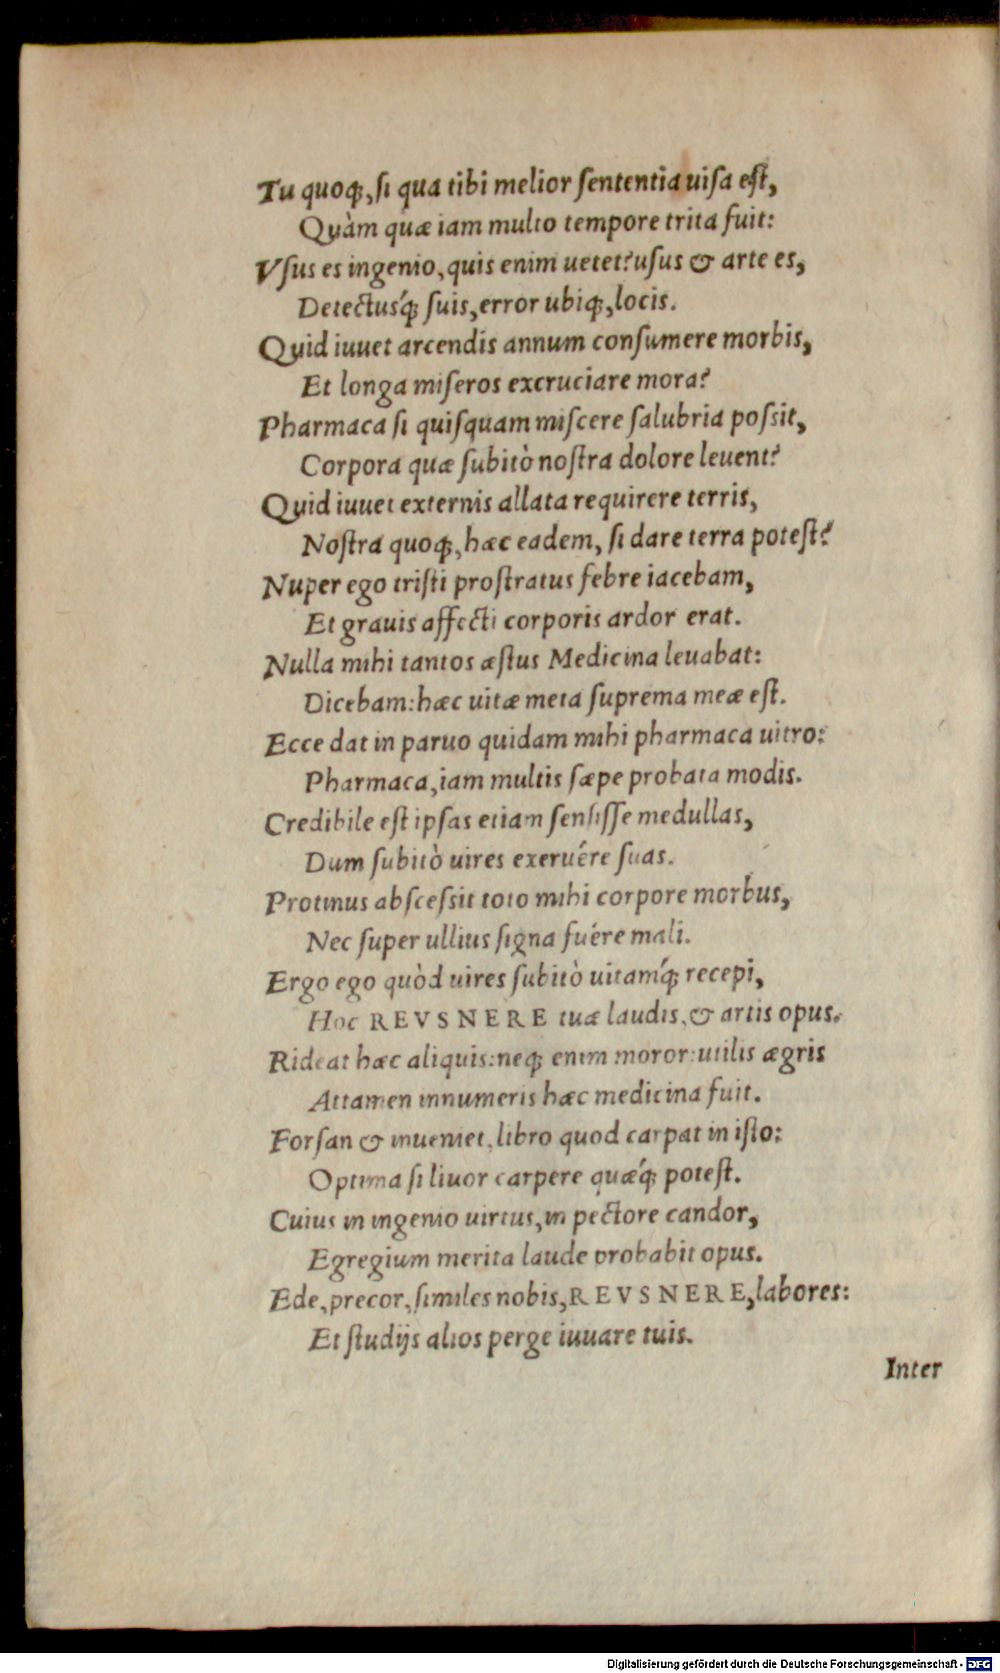 Tu quoq;, si qua tibi melior sententia uisa est,
Quàm quæ iam multo tempore trita fuit:
Vsus es ingenio, quis enim uetet? usus & arte es,
Detectusq́; suis, error ubiq;, locis.
Quid iuuet arcendis annum consumere morbis,
Et longa miseros excruciare mora?
Pharmaca si quisquam miscere salubria possit,
Corpora quæ subitò nostra dolore leuent?
Quid iuuet externis allata requirere terris,
Nostra quoq;, hæc eadem, si dare terra potest?
Nuper ego tristi prostratus febre iacebam,
Et grauis affecti corporis ardor erat.
Nulla mihi tantos æstus Medicina leuabat:
Dicebam: hæc uitæ meta suprema meæ est.
Ecce dat in paruo quidam mihi pharmaca uitro:
Pharmaca, iam multis sæpe probata modis.
Credibile est ipsas etiam sensisse medullas,
Dum subitò uires exeruére suas.
Protinus abscessit toto mihi corpore morbus,
Nec super ullius signa fuére mali.
Ergo ego quòd uires subitò uitamq́; recepi,
Hoc REVSNERE tuæ laudis, & artis opus.
Rideat hæc aliquis: neq; enim moror: utilis ægris
Attamen innumeris hæc medicina fuit.
Forsan & inueniet, libro quod carpat in isto:
Optima si liuor carpere quæq́; potest.
Cuius in ingenio uirtus, in pectore candor,
Egregium merita laude probabit opus.
Ede, precor, similes nobis, REVSNERE, labores:
Et studijs alios perge iuuare tuis.
Inter
Digitalisierung gefördert durch die Deutsche Forschungsgemeinschaft - DFG